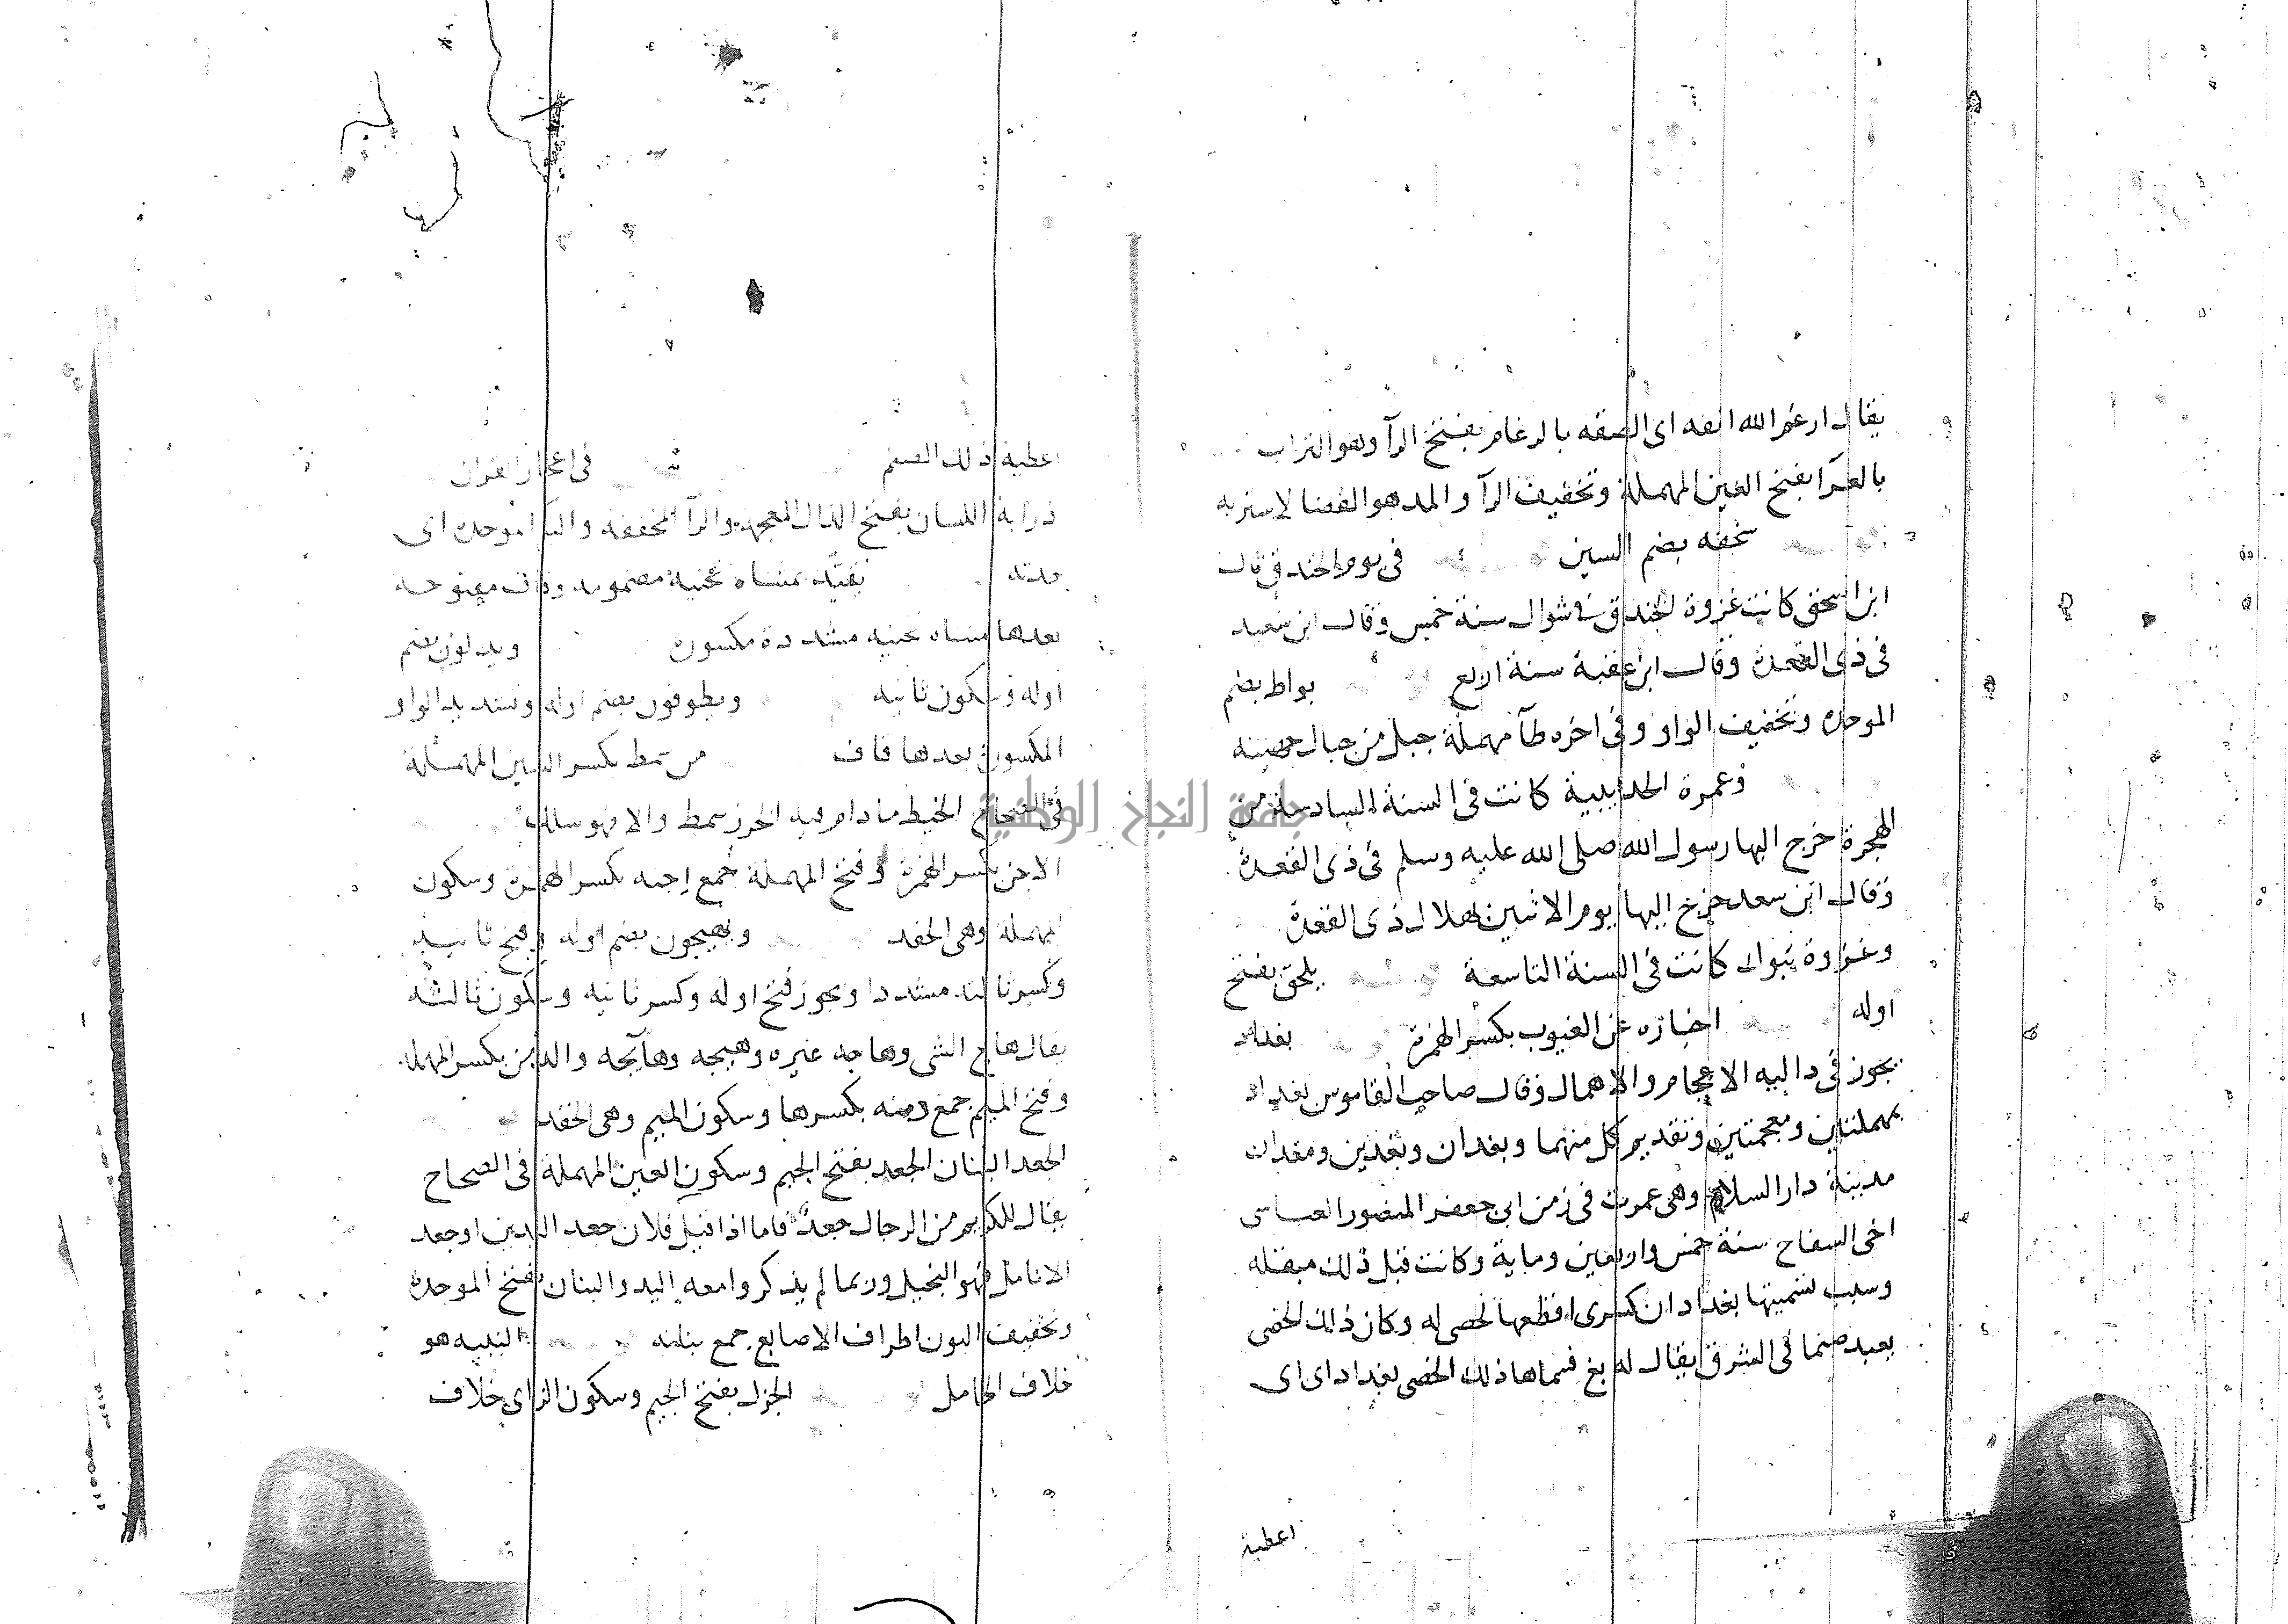 يقال ارغم الله انفه اى الصقه بالرغام بفتح الرآ وهو التراب
بالعرا بفتح العين المهملة وتخفيف الرآ والمد هو الفضا لا ستر به
سخفه بضم السين فى يوم الخندق قال
ابن اسحق كانت غزوة الخندق فى شوال سنة خمس وقال ابن سعيد
فى ذى القعدة وقال ابن عقبة سنة اربع بواط بضم
الموحدة وتخفيف الواو وفى اخره طآ مهملة جبل من جبال جهينه
وعمرة الحديبية كانت فى السنة السادسة من
الهجرة خرج اليها رسول الله صلى الله عليه وسلم فى ذى القعدة
وقال ابن سعد خرج اليها يوم الاثنين لهلال ذى القعدة
وغزوة تبوك كانت فى السنة التاسعة يلحق بفتح
اوله اخباره عن الغيوب بكسر الهمزة بغداد
يجوز فى داليه الاعجام والاهمال وقال صاحب القاموس بغداد
بمهملتين ومعجمتين وتقديم كل منهما وبغدان وبغدين ومغدان
مدينة دار السلام وهى عمرت فى زمن ابى جعفر المنصور العباسى
اخى السفاح سنة خمس واربعين وماية وكانت قبل ذلك مبقله
وسبب تسميتها بغداد ان كسرى اقطعها لخصى له وكان ذلك الخصى
يعبد صنما فى الشرق يقال له بغ فسماها ذلك الخصى بغداد اى اى
اعطية
اعطية ذلك الصنم فى اعجاز القران
ذرابة اللسان بفتح الذال المعجمة والرآ المخففه والبآ موحدة اى
حدته يقيّد بمثناه تحتية مضمومه وقاف مفتوحه
بعدها مثناه تحتيه مشددة مكسوره ويدلون بضم
اوله وسكون ثانيه ويطوقون بضم اوله وتشديد الواو
المكسورة بعدها قاف من سمط بكسر السين المهملة
فى الصحاح الخيط ما دام فيه الخرز سمط والا فهو سلك
الاحن بكسر الهمزة وفتح المهملة جمع احنه بكسر الهمزة وسكون
المهملة وهى الحقد ويهيجون بضم اوله وفتح ثانيه
وكسر ثالثه مشددا ويجوز فتح اوله وكسر ثانيه وسكون ثالثه
يقال هاج الشى وهاجه غيره وهيجه وهايجه والدمن بكسر المهمله
وفتح الميم جمع دمنه بكسرها وسكون الميم وهى الحقد
الجعد البنان الجعد بفتح الجيم وسكون العين المهملة فى الصحاح
يقال للكريم من الرجال جعد فاما اذا قيل فلان جعد اليدين او جعد
الانامل فهو البخيل وربما لم يذكروا معه اليد والبنان بفتح الموحدة
وتخفيف النون اطراف الاصابع جمع بنانه النبيه هو
خلاف الخامل الجزل بفتح الجيم وسكون الزاى خلاف
جامعة النجاح الوطنية